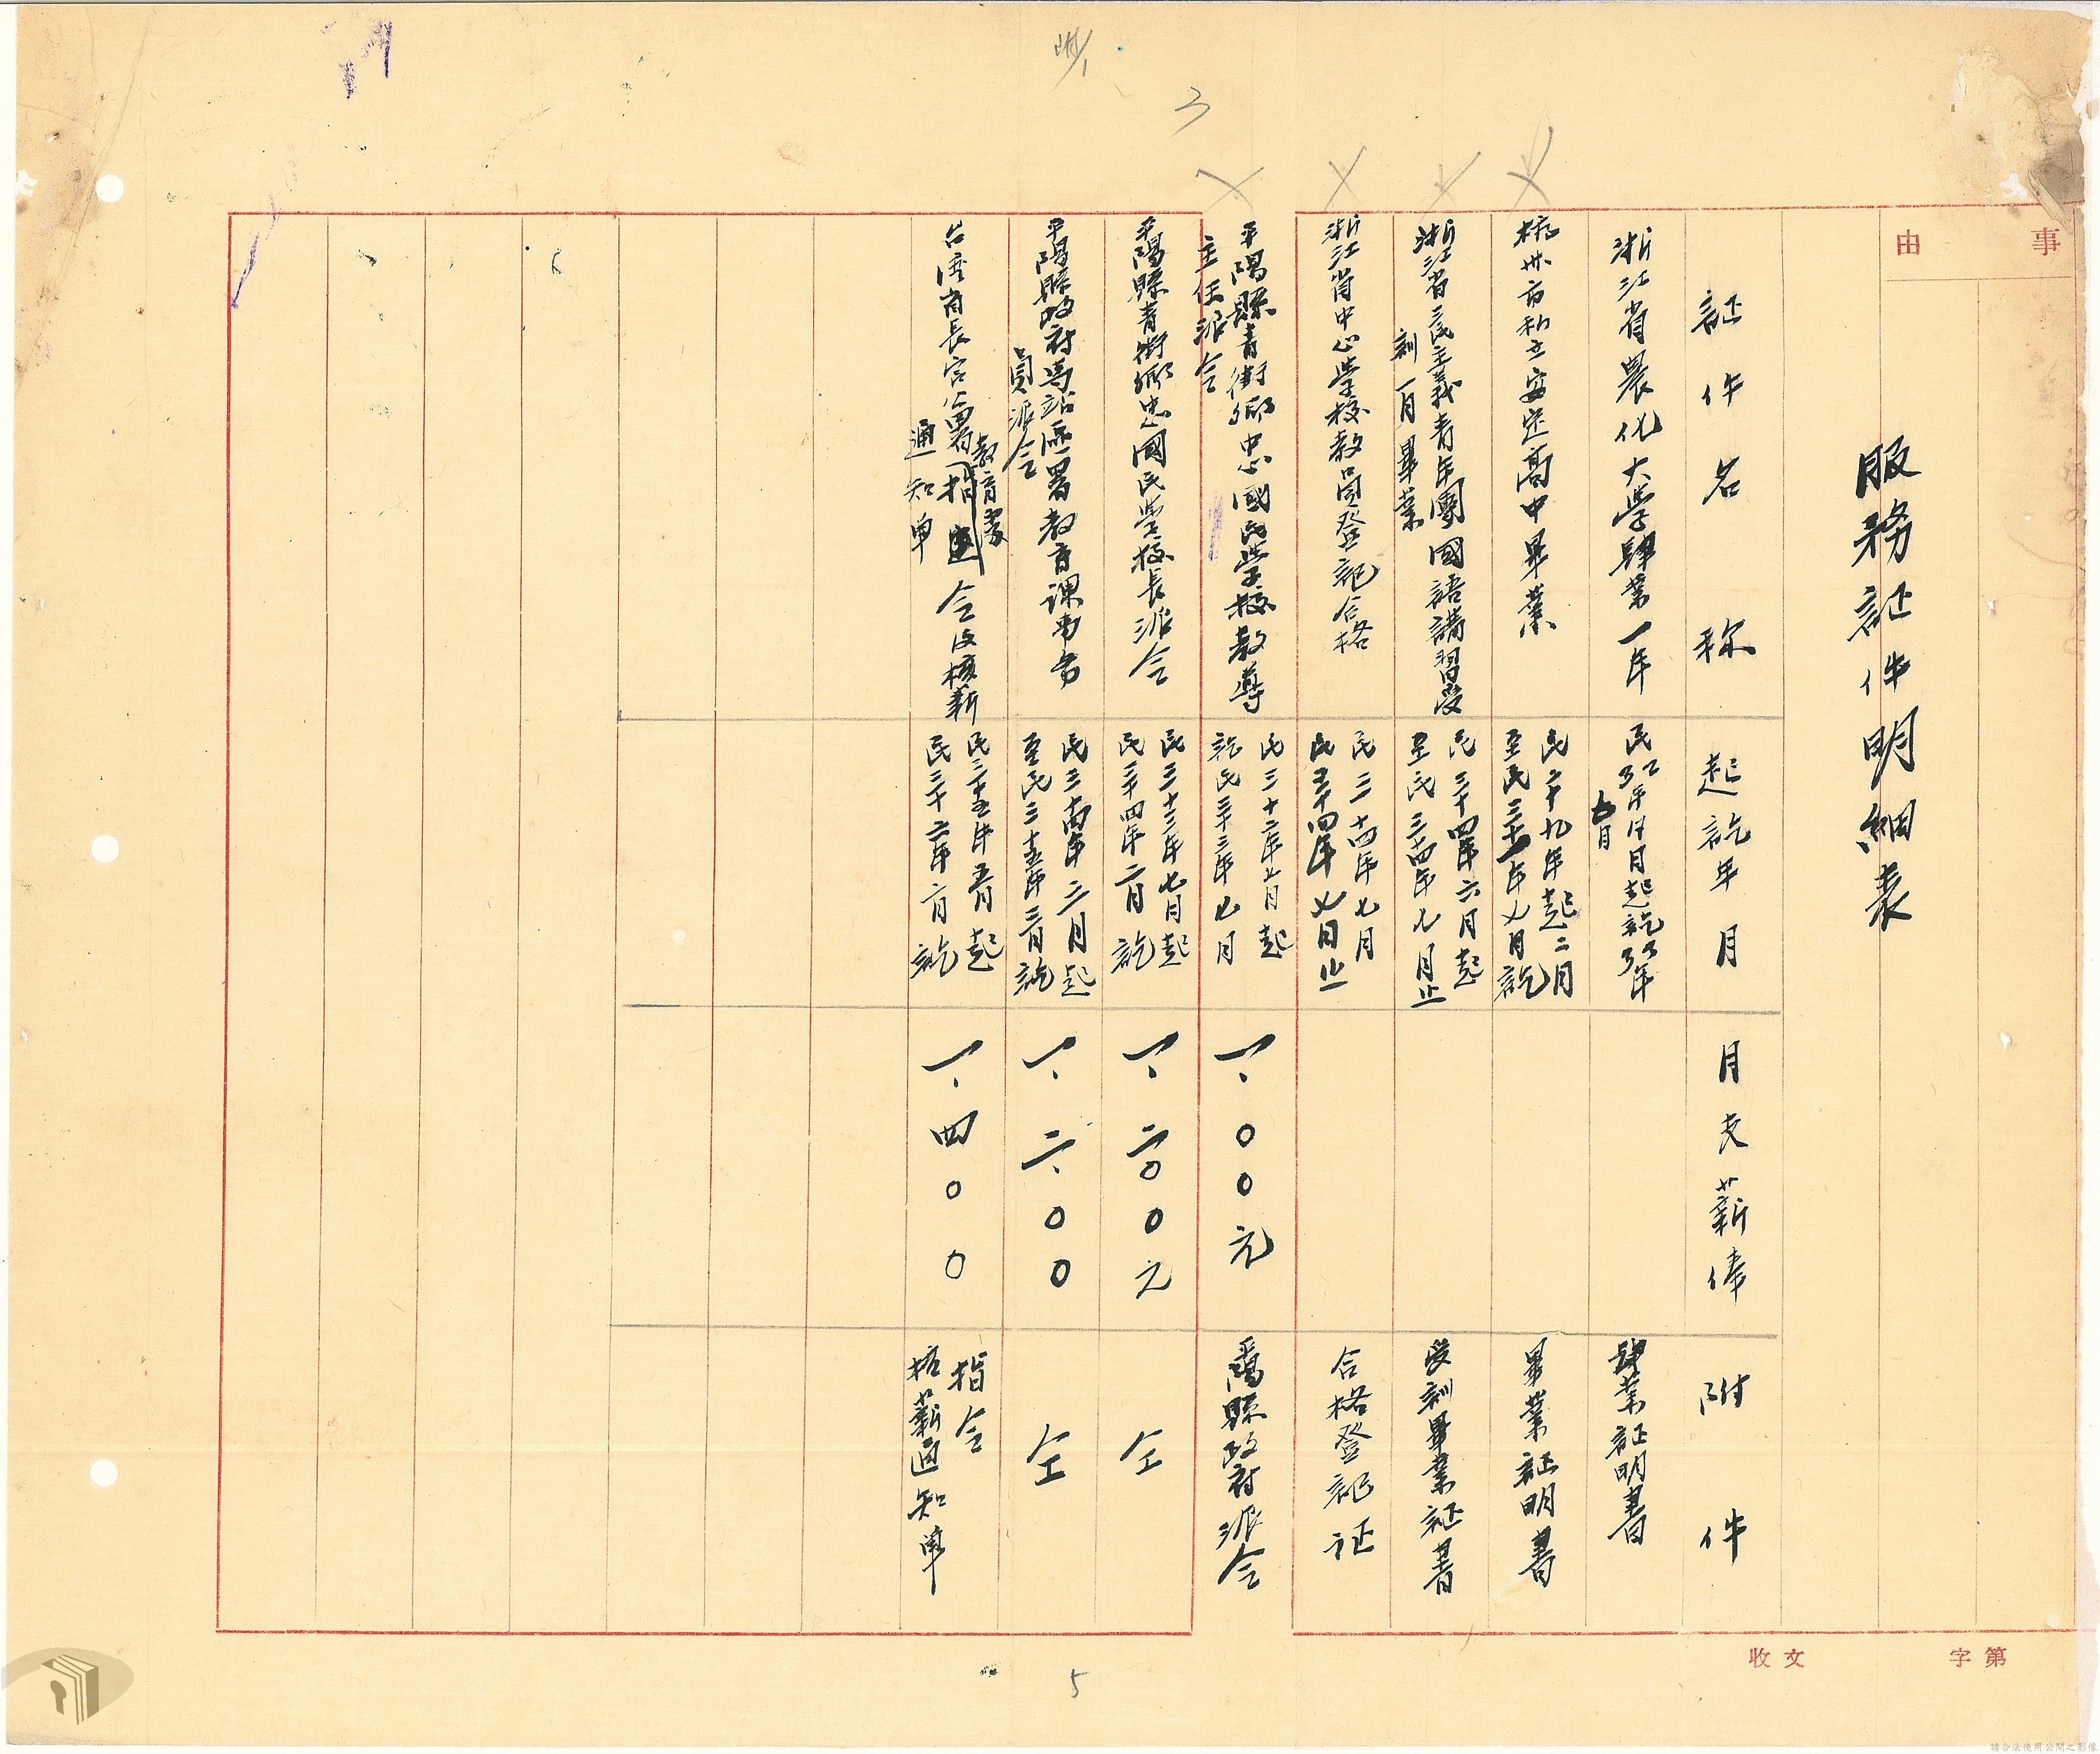 事由
服務証件明細表
証件名称
起訖年月
月支薪俸
附件
浙江省農化大學肄業一年
民32年 月起訖33年
七月
肄業証明書
杭州市私立安定高中畢業
民二十九年起二月
至民三十一年七月訖
畢業証明書
浙江省三民主義青年團國語講習受
訓一月畢業
民三十四年六月起
至民三十四年七月止
受訓畢業証書
浙江省中心學校教員登記合格
民三十四年七月
民三十四年七月止
合格登記証
平陽縣青街鄉忠國民學校教導
主任派令
民三十二年七月起
訖民三十三年七月
一、〇〇元
平陽縣政府派令
平陽縣青街鄉忠國民學校長派令
民三十三年七月起
民三十四年二月訖
一、二〇〇元
仝
平陽縣政府馬站區署教育課
員派令
民三十四年二月起
至民三十五年三月訖
一、二、〇〇
仝
台灣省長官公署教育處指令及核薪
通知单
民三十五年五月起
民三十六年二月訖
一、四〇〇
指令
核薪通知單
3
5
第字
收文
請合法使用公開之影像